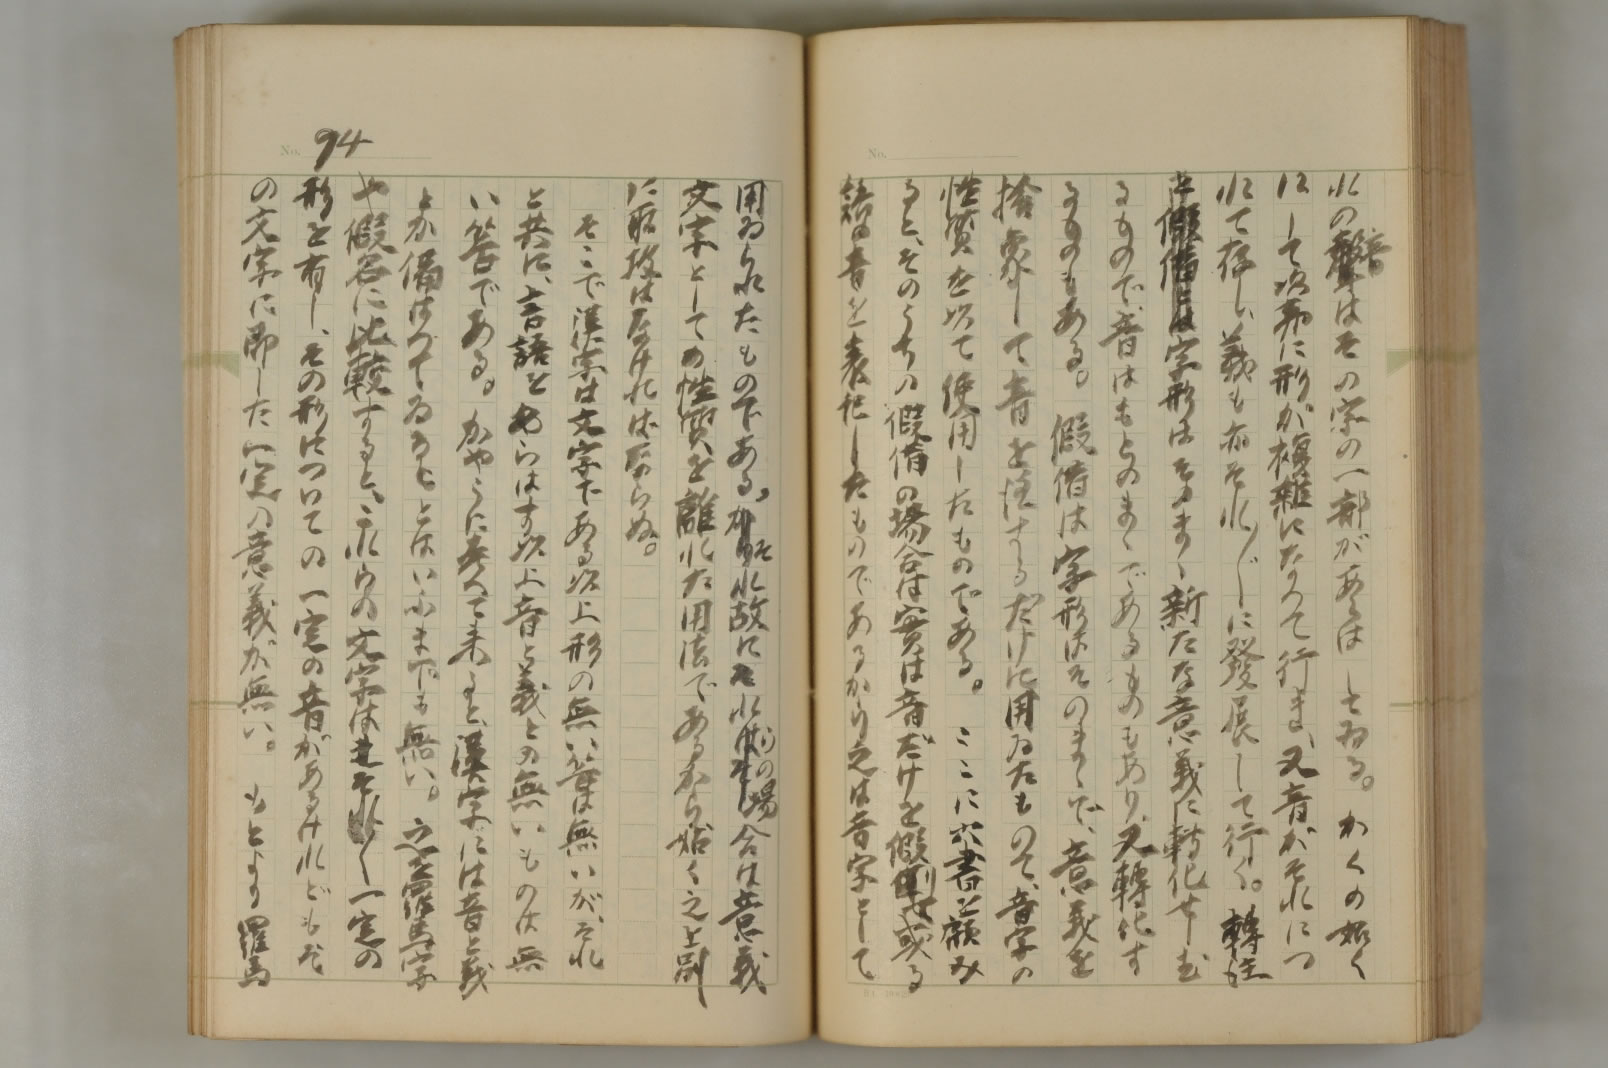 No.
れの音はその字の一部があらはしてゐる。かくの如く
にして次第に形が複雑になつて行き、又音がそれにつ
れて存し、義も亦それ〲に發展して行く。轉注も
字形はそのまゝ新たな意義に轉化せしむ
るもので、音はもとのまゝであるものもあり、又轉化す
るものもある。假借は字形はそのまゝで、意義を
捨象して音を注するだけに用ゐたもので、音字の
性質を以て使用したものである。ここに六書を顧み
ると、そのうちの假借の場合は實は音だけを假り或る
語の音を表記したものであるから之は音字として
No. 94
用ゐられたものである。それ故にその場合は意義
文字としての性質を離れた用法であるから姑く之を別
に取扱はなければならぬ。
そこで漢字は文字である以上形の無い筈は無いが、それ
と共に、言語をあらはす以上音と義との無いものは無
い筈である。かやうに考へて来ると、漢字には音と義
とが備はつてゐることはいふまでも無い。之を羅馬字
や假名に比較すると、これらの文字は一定の
形を有し、その形についての一定の音があるけれどもそ
の文字に即した一定の意義が無い。もとより羅馬